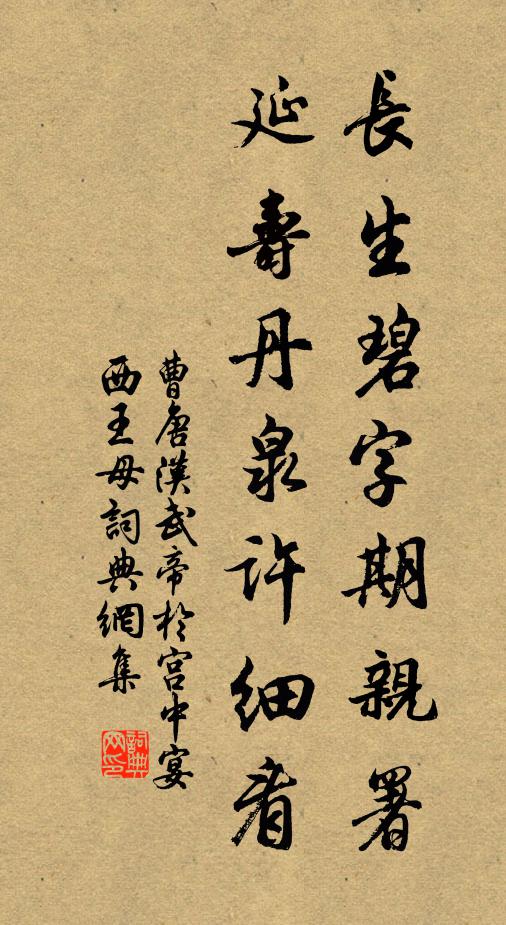 長生碧字期親署
延壽丹泉許細看
曹唐漢武帝於宮中宴
西王母詞典網集
詞典网印